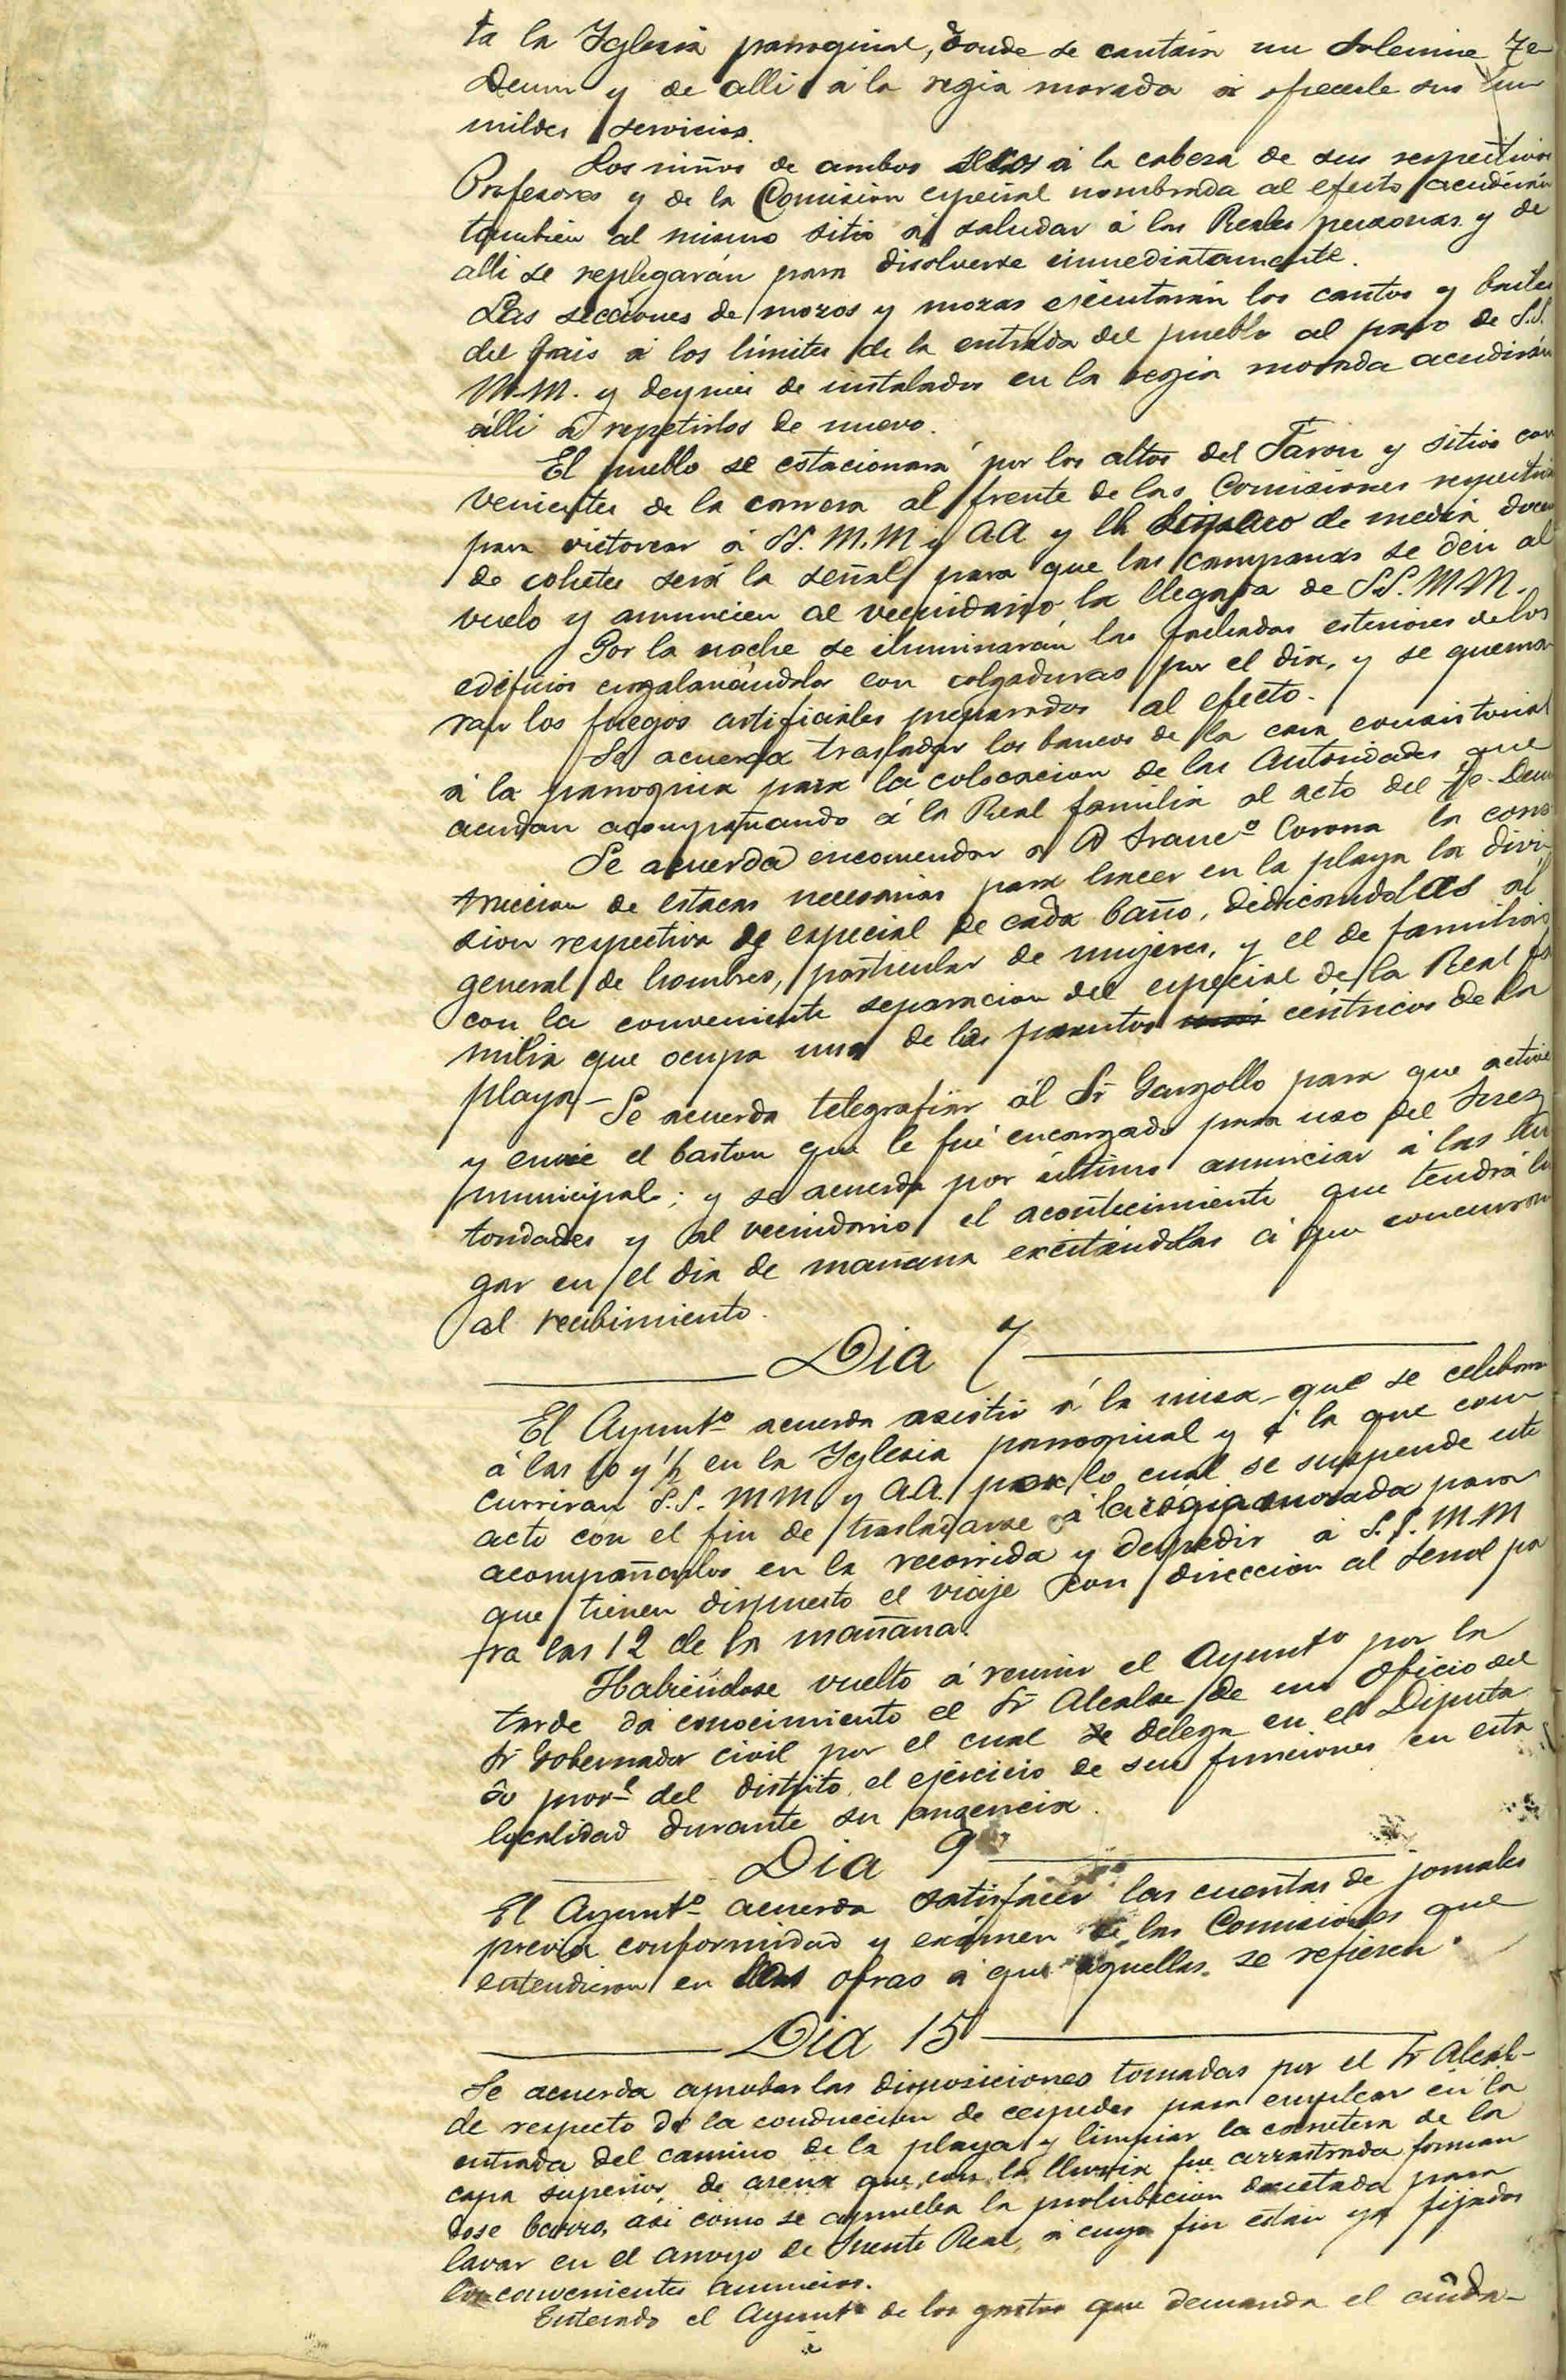 ta la Yglesia parroquial, donde se cantará un solemne Te
Deum y de alli á la regia morada á ofrecerle sus hu
mildes servicios.
Los niños de ambos sexos á la cabeza de sus respectivos
Profesores y de la Comision especial nombrada al efecto acudirán
tambien al mismo sitio á saludar á las Reales personas y de
alli se replegarán para disolverse inmediatamente.
Las secciones de mozos y mozas ejecutarán los cantos y bailes
del pais á los límites de la entrada del pueblo al paso de S.S.
M.M. y despues de instalados en la regia morada acudirán
alli á repetirlos de nuevo.
El pueblo se estacionará por los altos del Taron y sitios con
venientes de la carrera al frente de las Comisiones respectivas
para victorear á SS. M.M y A.A y el disparo de media docena
de cohetes será la señal para que las campanas se den al
vuelo y anuncien al vecindario la llegada de S.S. M.M.
Por la noche se iluminarán las fachadas esteriores de los
edificios engalanándolos con colgaduras por el dia, y se quema
ran los fuegos artificiales preparados al efecto.
Se acuerda trasladar los bancos de la casa consistorial
á la parroquia para la colocacion de las Autoridades que
acudan acompañando á la Real familia al acto del Te-Deum
Se acuerda encomendar á D Francº Corona la cons
truccion de estacas necesarias para hacer en la playa la divi
sion respectiva de especial de cada baño, dedicandolas al
general de hombres, particular de mujeres, y el de familias
con la conveniente separacion del especial de la Real fa
milia que ocupa uno de los puntos céntricos de la
playa- Se acuerda telegrafiar al Sr Gargollo para que active
y envie el baston que le fué encargado para uso del Juez
municipal; y se acuerda por último anunciar á las Au
toridades y al vecindario el acontecimiento que tendrá lu
gar en el dia de mañana excitándolas á que concurran
al recibimiento.
Dia 7
El Ayuntº acuerda asistir á la misa que se celebrará
á las 10 y ½ en la Yglesia parroquial y á la que con
curriran S.S. MM y A.A. por lo cual se suspende este
acto con el fin de trasladarse á la régia morada para
acompañarlos en la recorrida y despedir á S.S. M.M
que tienen dispuesto el viaje con direccion al Ferrol pa
ra las 12 de la mañana.
Habiéndose vuelto á reunir el Ayuntº por la
tarde dá conocimiento el Sr Alcalde de un oficio del
Sr Gobernador civil por el cual se delega en el Diputa
do provl del distrito el ejercicio de sus funciones en esta
localidad durante su ausencia.
Dia 9
El Ayuntº acuerda satisfacer las cuentas de jornales
previa conformidad y exámen de las Comisiones que
entendieron en las obras á que aquellas se refieren.
Dia 15
Se acuerda aprobar las disposiciones tomadas por el Sr Alcal-
de respecto de la conduccion de cespedes para emplear en la
entrada del camino de la playa y limpiar la carretera de la
capa superior de arena que con la lluvia fue arrastrada forman
dose barro, asi como se aprueba la prohibicion decretada para
lavar en el arroyo de Fuente Real, á cuyo fin están ya fijados
los convenientes anuncios.
Enterado el Ayuntº de los gastos que demanda el cuida-